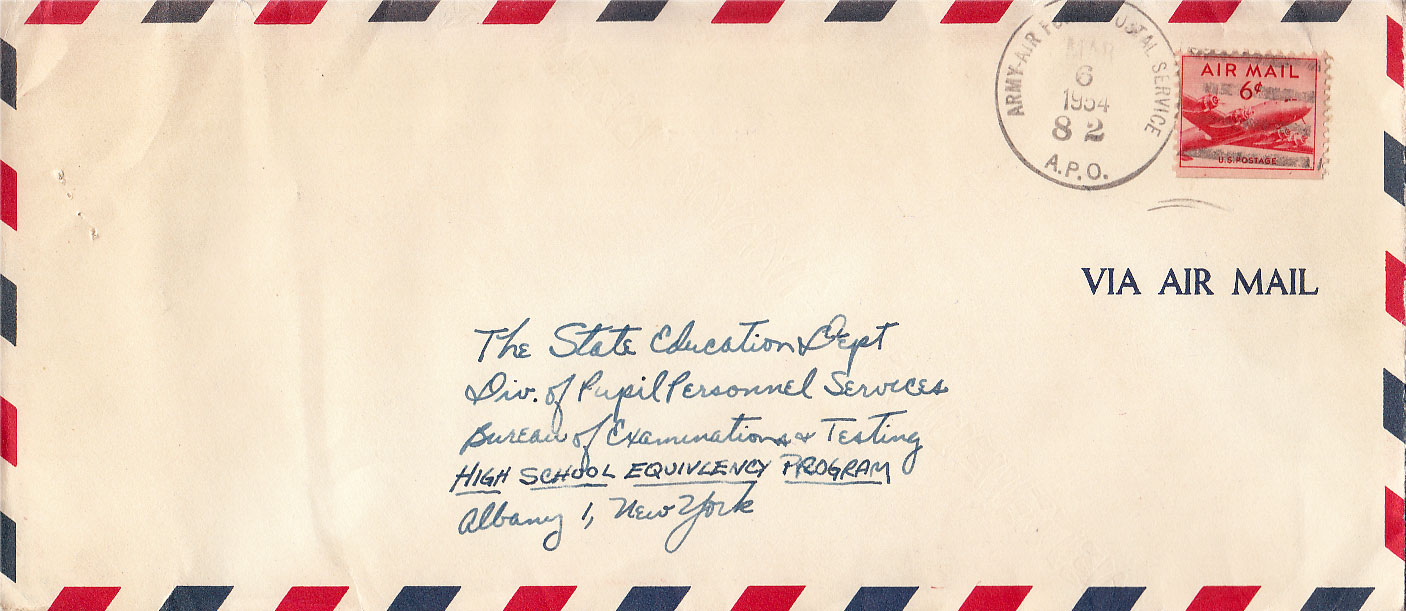 ARMY-AIR FORCE POSTAL SERVICE
MAR
6
1954
82
A.P.O.
AIR MAIL
6¢
U.S. POSTAGE
VIA AIR MAIL
The State Education Dept
Div. of Pupil Personnel Services
Bureau of Examinations & Testing
HIGH SCHOOL EQUIVLENCY PROGRAM
Albany 1, New York